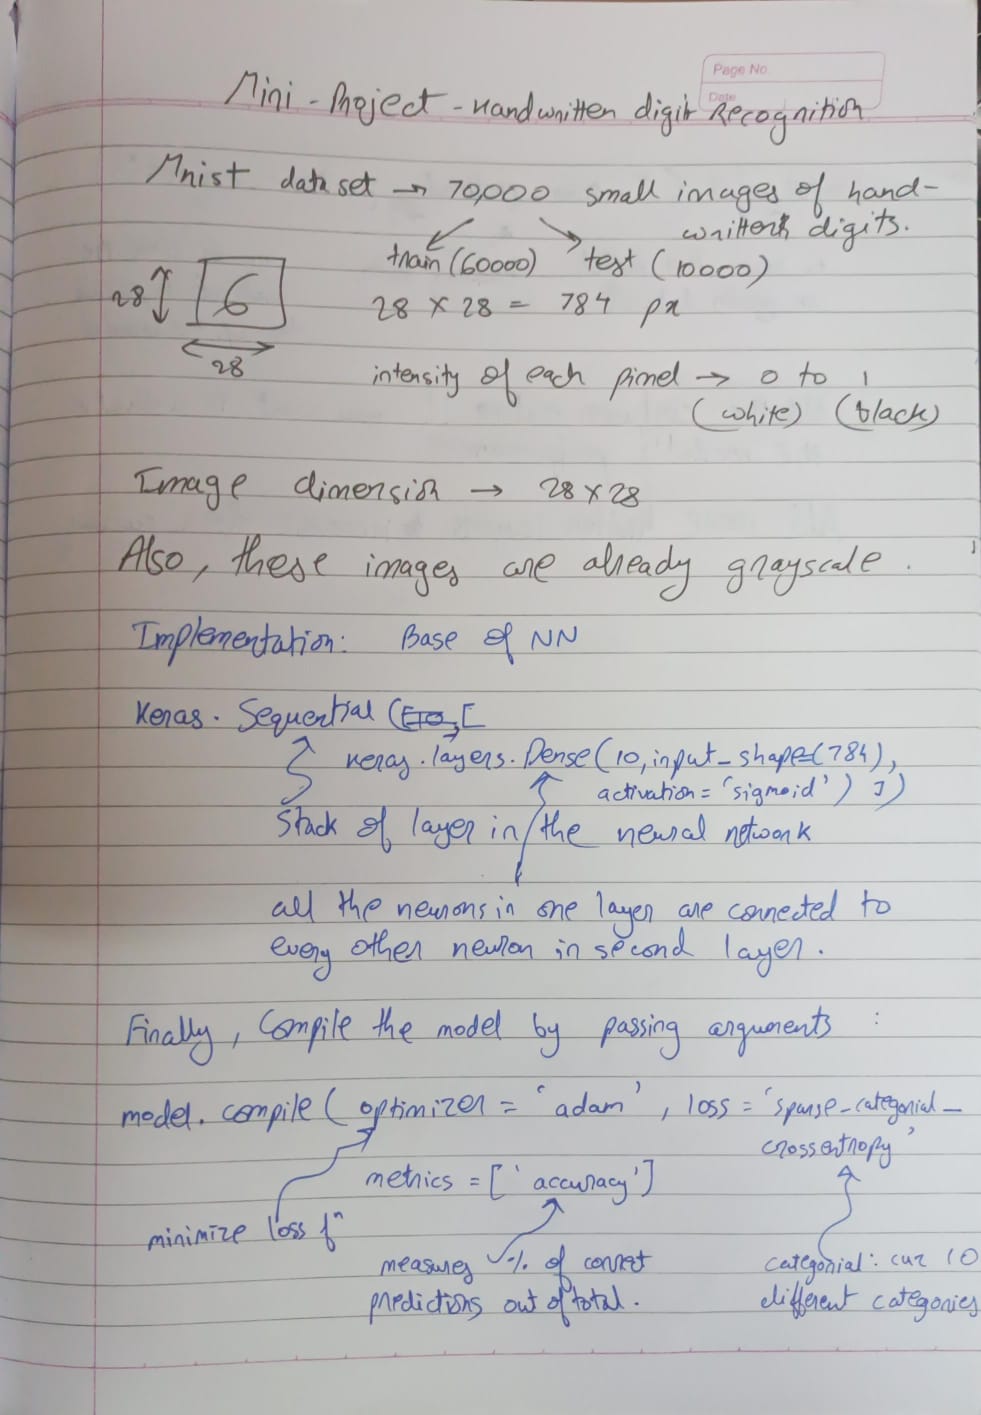 Page No
Date
Mini-Project - Handwritten digit Recognition
Mnist dataset → 70,000 small images of hand-
written digits.
train (60000) test (10000)
28 6 28 × 28 = 784 px
28
intensity of each pixel → 0 to 1
(white) (black)
Image dimension → 28×28
Also, these images are already grayscale.
Implementation: Base of NN
Keras. Sequential ([
keras.layers.Dense(10, input_shape=(784),
activation = 'sigmoid') ])
Stack of layer in the neural network
all the neurons in one layer are connected to
every other neuron in second layer.
Finally, Compile the model by passing arguments :
model. compile ( optimizer = 'adam', loss = 'sparse-categorial-
crossentropy'
metrics = ['accuracy']
minimize loss fⁿ
measures % of correct
predictions out of total.
categorial: cuz 10
different categories